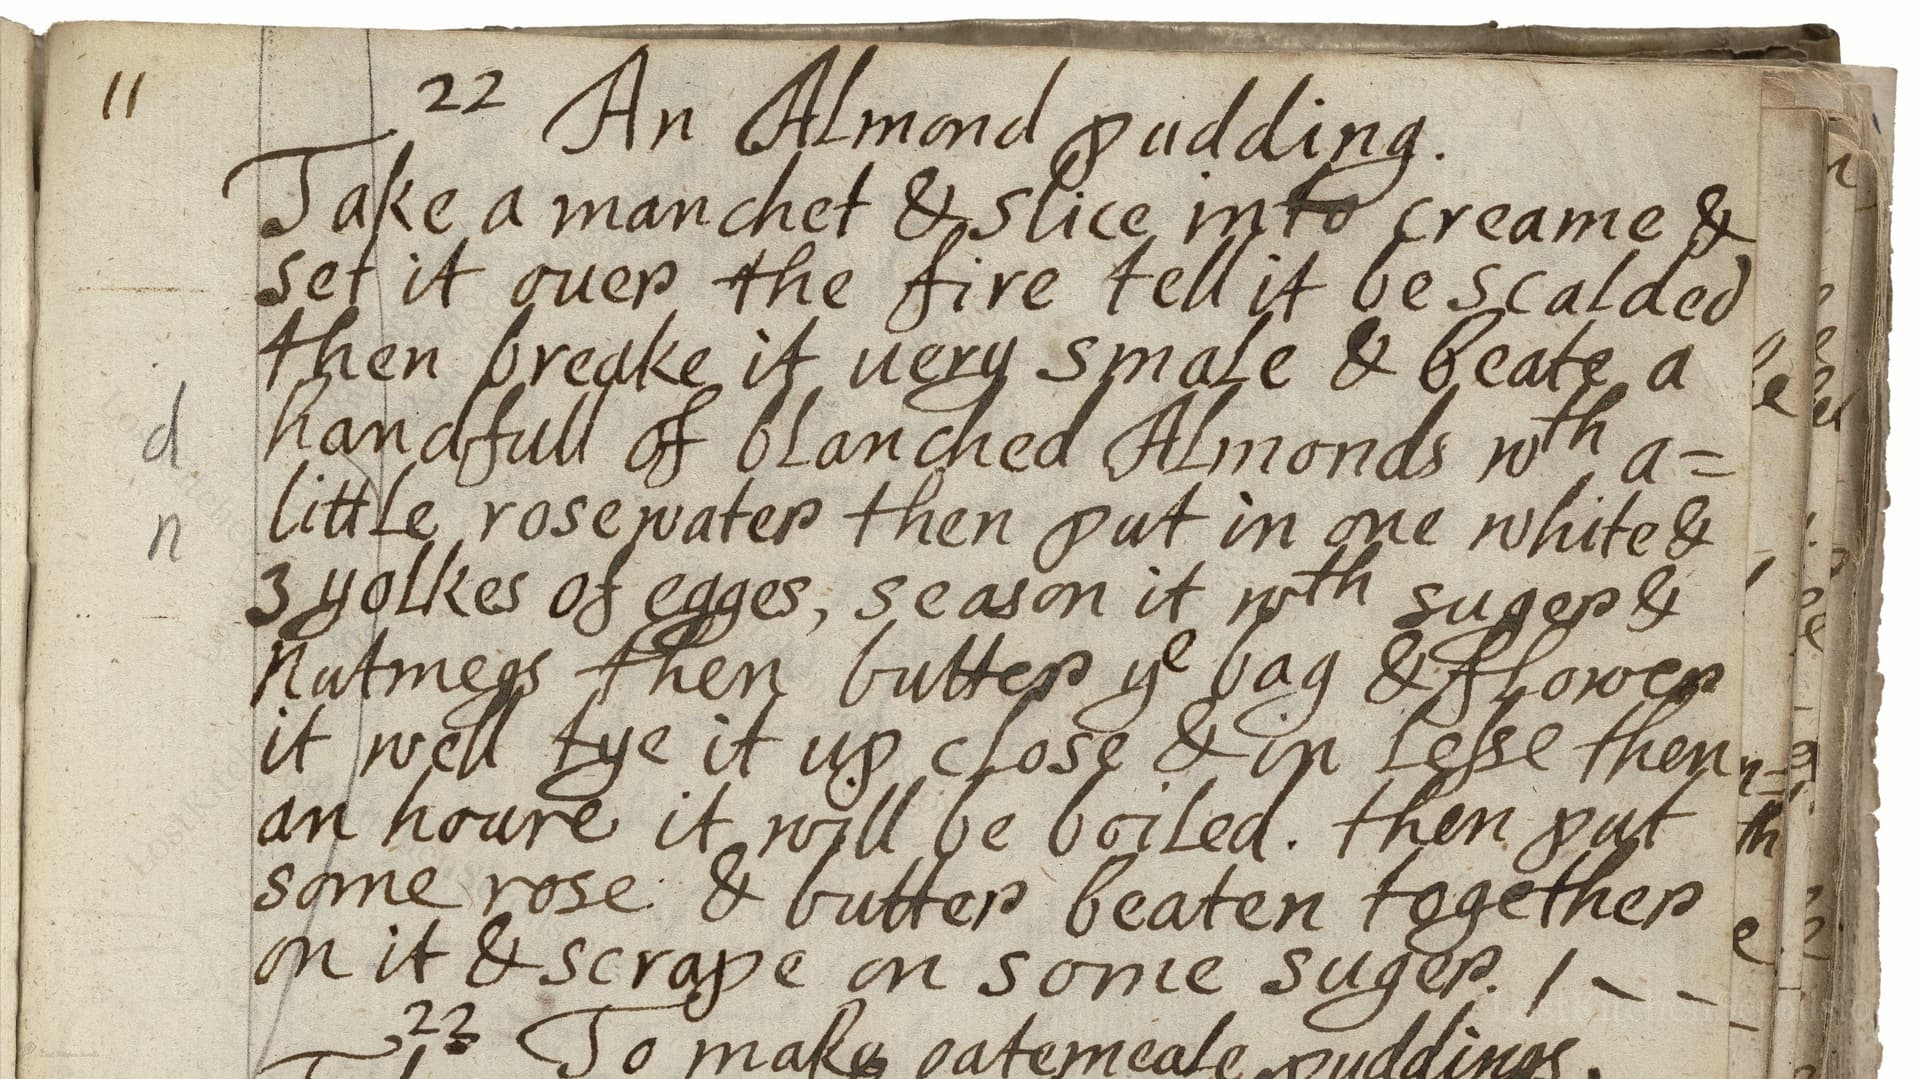 11
22 An Almond pudding.
Take a manchet & slice into creame &
set it ouer the fire tell it be scalded
then breake it uery smale & beate a
handfull of blanched Almonds wth a=
little rosewater then put in one white &
3 yolkes of egges, season it wth suger &
nutmegs then butter ye bag & flower
it well tye it up close & in lesse then
an houre it will be boiled. then put
some rose & butter beaten together
on it & scrape on some suger. / - -
23 To make oatemeale puddings.
d
n